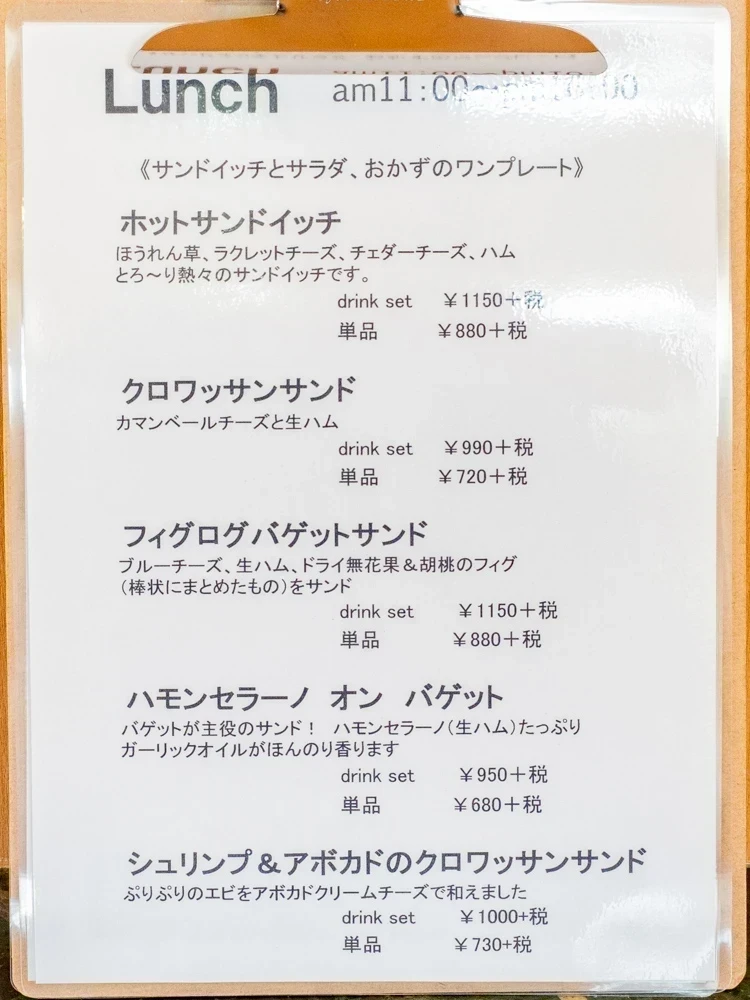 Lunch am11:00～pm16:00
《サンドイッチとサラダ、おかずのワンプレート》
ホットサンドイッチ
ほうれん草、ラクレットチーズ、チェダーチーズ、ハム
とろ～り熱々のサンドイッチです。
drink set ￥1150＋税
単品 ￥880＋税
クロワッサンサンド
カマンベールチーズと生ハム
drink set ￥990＋税
単品 ￥720＋税
フィグログバゲットサンド
ブルーチーズ、生ハム、ドライ無花果＆胡桃のフィグ
（棒状にまとめたもの）をサンド
drink set ￥1150＋税
単品 ￥880＋税
ハモンセラーノ オン バゲット
バゲットが主役のサンド！ ハモンセラーノ（生ハム）たっぷり
ガーリックオイルがほんのり香ります
drink set ￥950＋税
単品 ￥680＋税
シュリンプ＆アボカドのクロワッサンサンド
ぷりぷりのエビをアボカドクリームチーズで和えました
drink set ￥1000+税
単品 ￥730+税